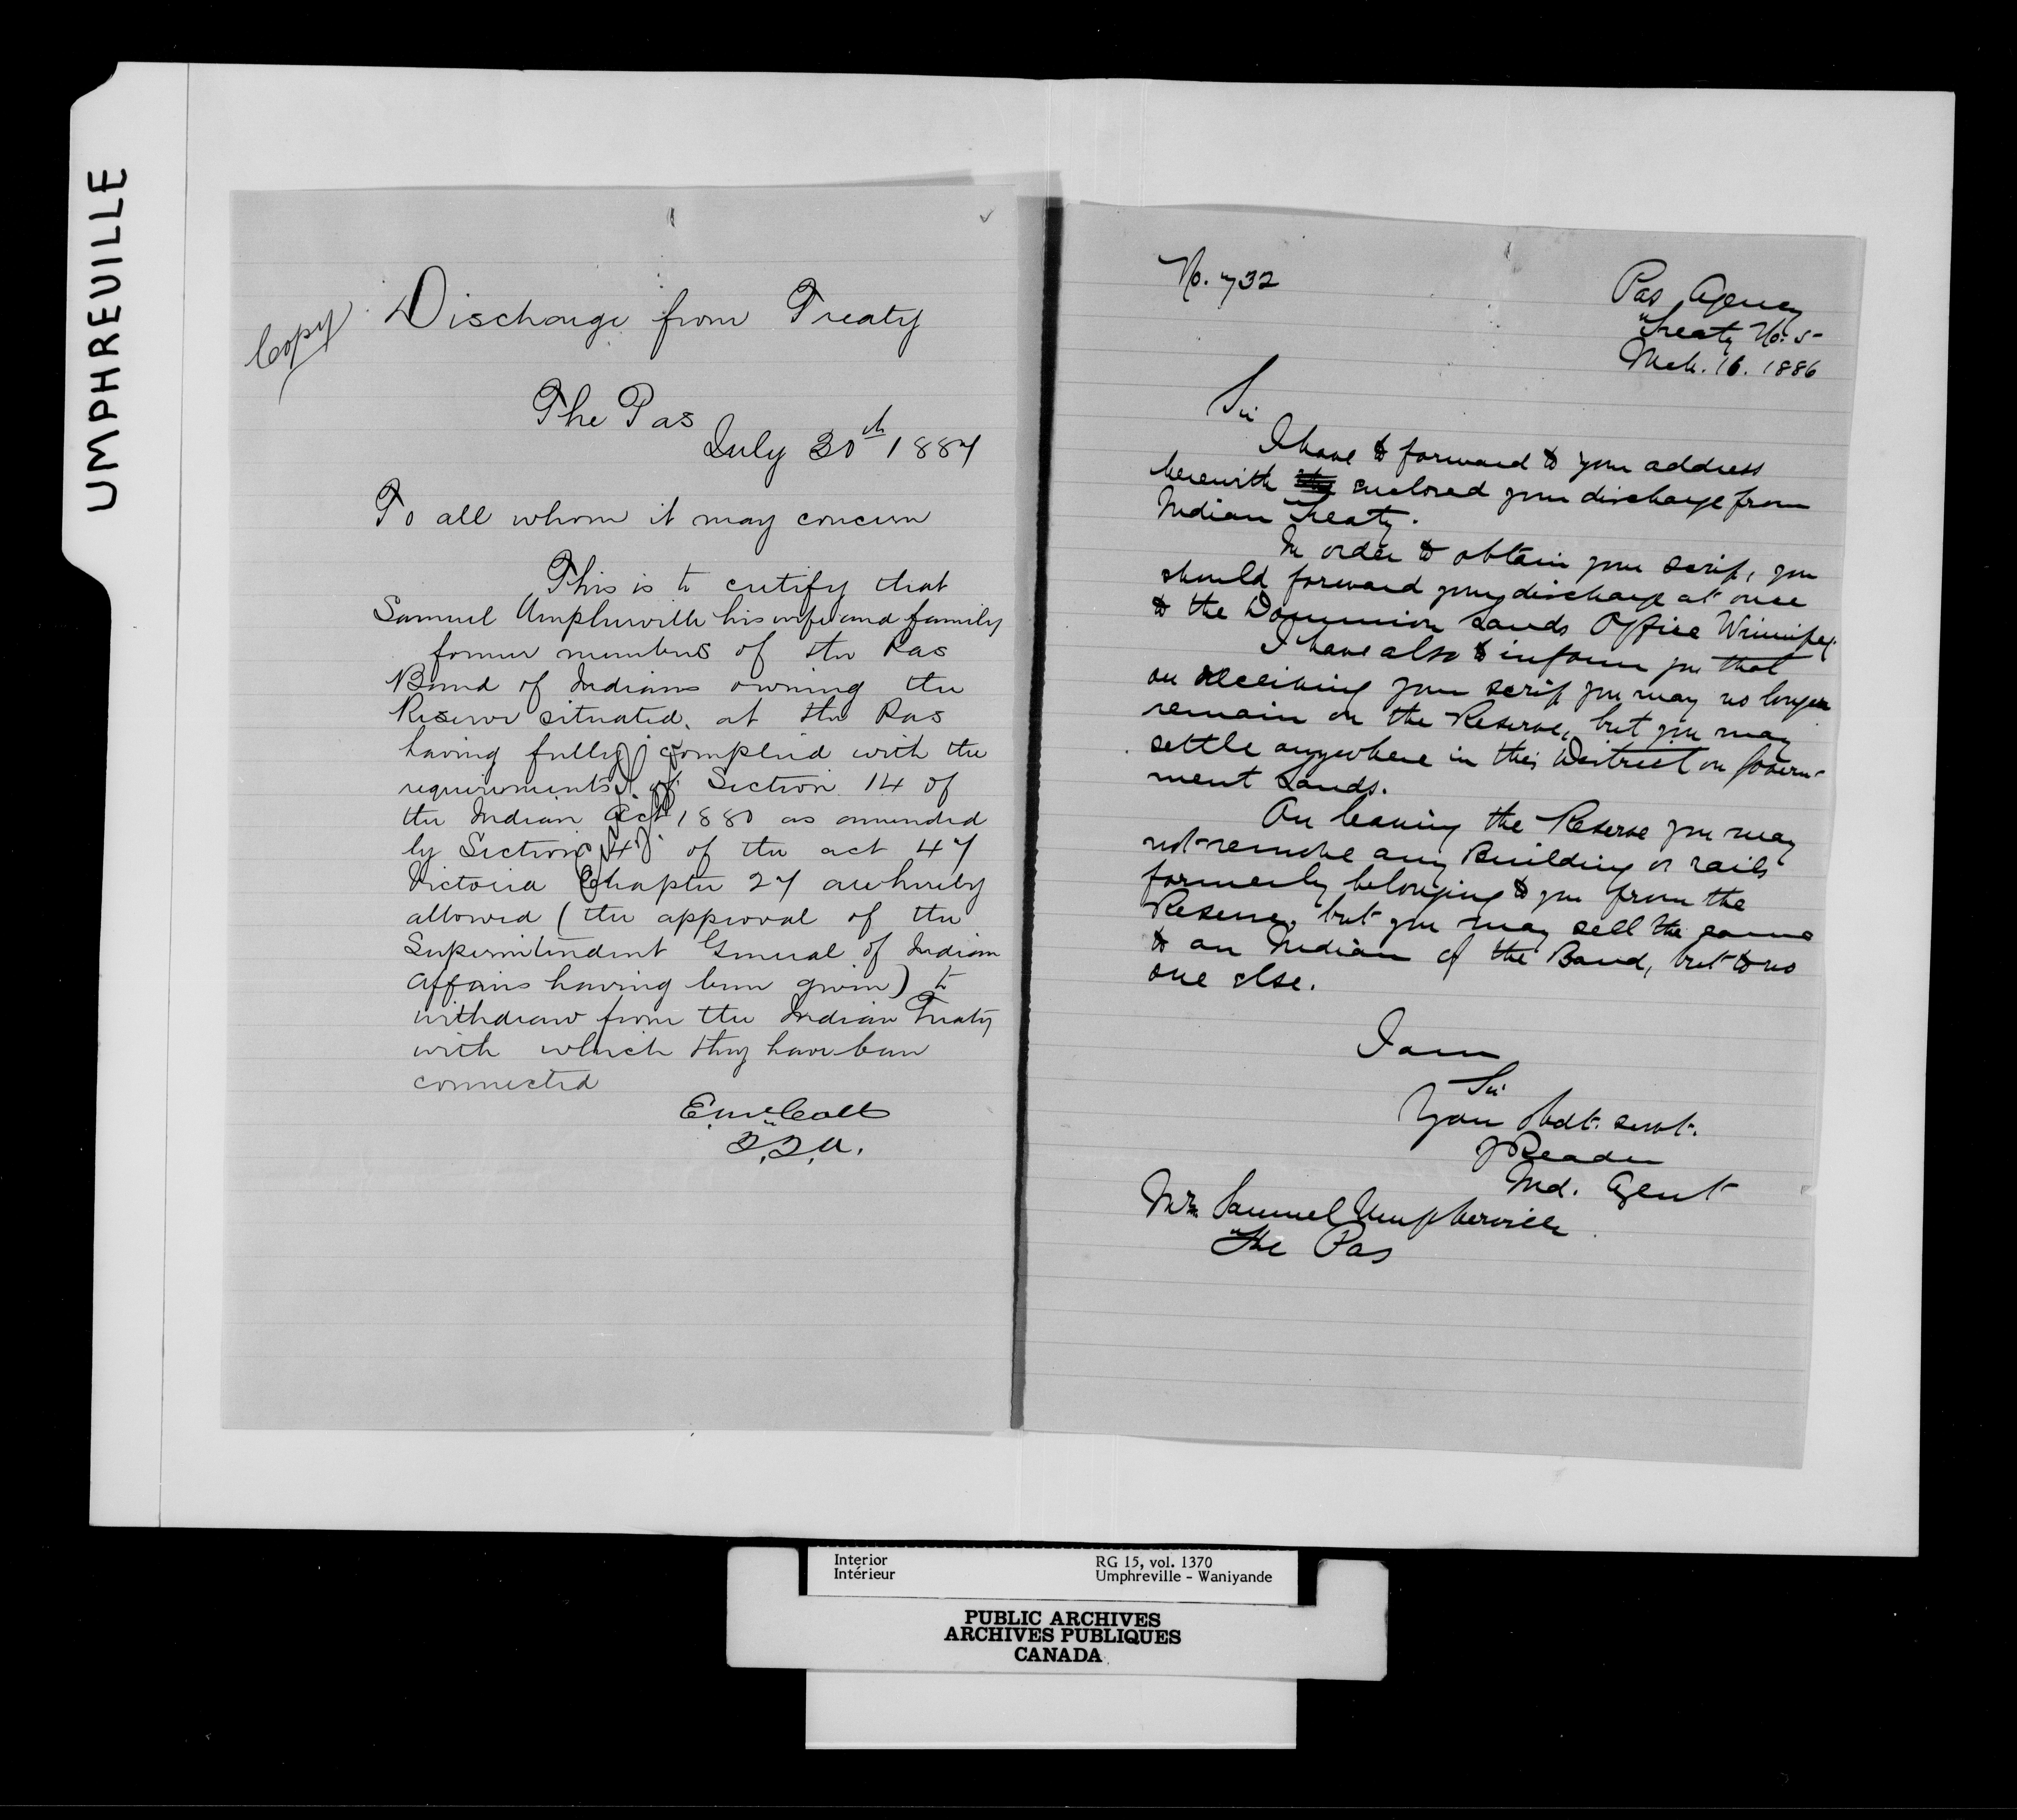 UMPHREUILLE
Copy
Discharge from Treaty
The Pas
July 30th 1887
To all whom it may concern
This is to certify that
Samuel Umpherville his wife and family
former members of the Pas
Band of Indians owning the
Reserve situated at the Pas
having fully complied with the
requirements of Section 14 of
the Indian Act 1880 as amended
by Section 4 of the act 47
Victoria Chapter 27 are hereby
allowed (the approval of the
Superintendent General of Indian
Affairs having been given) to
withdraw from the Indian Treaty
with which they have been
connected
E McColl
No. 732
Pas Agency
Treaty No. 5
Mch. 16. 1886
Sir
I have to forward to your address
herewith enclosed your discharge from
Indian Treaty.
In order to obtain your scrip, you
should forward your discharge at once
to the Dominion Lands Office Winnipeg.
I have also to inform you that
on receiving your scrip you may no longer
remain on the Reserve, but you may
settle anywhere in this District on Govern-
ment Lands.
On leaving the Reserve you may
not remove any Building or rails
formerly belonging to you from the
Reserve, but you may sell the same
to an Indian of the Band, but to no
one else.
I am
Sir
Your obdt. servt.
J Reader
Ind. Agent
Mr. Samuel Umpherville
The Pas
Interior RG 15, vol. 1370
Intérieur Umphreville - Waniyande
PUBLIC ARCHIVES
ARCHIVES PUBLIQUES
CANADA